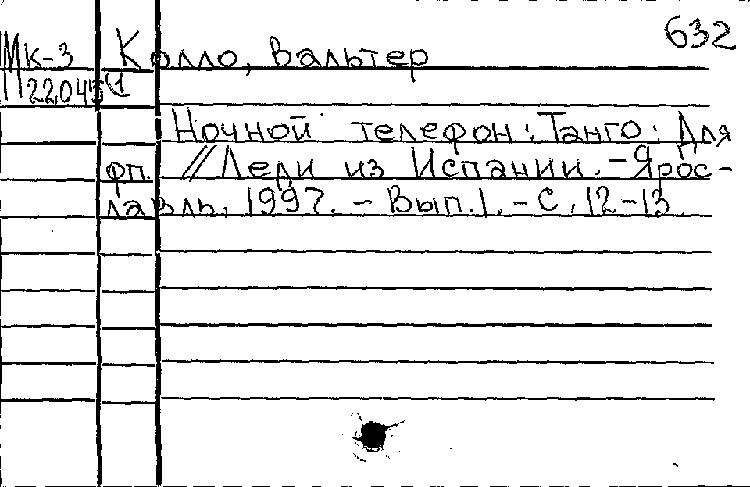 632
Мк-3 Колло, Вальтер
П22045/1
Ночной телефон: Танго: Для
фп. // Леди из Испании. - Ярос-
лавль, 1997. - Вып.1. - С. 12-13.